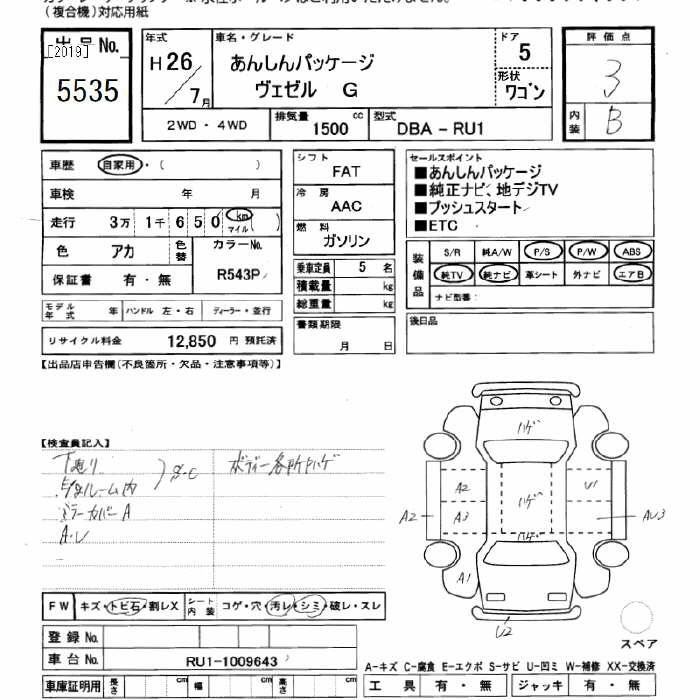 (複合機)対応用紙
出品No.
[2019]
5535
年式
H26/7月
車名・グレード
あんしんパッケージ
ヴェゼル G
ドア
5
形状
ワゴン
2WD・4WD
排気量 1500 cc
型式 DBA-RU1
評価点
3
内装
B
車歴 自家用・( )
車検 年 月
走行 3万 1千 6 5 0 km マイル( )
色 アカ 色替 カラーNo.
R543P
保証書 有・無
モデル年式 年 ハンドル 左・右 ディーラー・並行
リサイクル料金 12,850 円 預託済
シフト
FAT
冷房
AAC
燃料
ガソリン
乗車定員 5 名
積載量 kg
総重量 kg
書類期限
月 日
セールスポイント
■あんしんパッケージ
■純正ナビ、地デジTV
■プッシュスタート
■ETC
装備品
S/R 純A/W P/S P/W ABS
純TV 純ナビ 革シート 外ナビ エアB
ナビ型番:
後日品
【出品店申告欄(不良箇所・欠品・注意事項等)】
【検査員記入】
下廻り
ルーム内
S・C
ボディー各所ハゲ
ミラーカバーA
A・U
ハゲ
ハゲ
ハゲ
A2
A2
A3
A1
U1
AU3
U2
スペア
FW キズ・トビ石・割レX シート内装 コゲ・穴・汚レ・シミ・破レ・スレ
登録No.
車台No. RU1-1009643
車庫証明用 長さ cm 幅 cm 高さ cm
A-キズ C-腐食 E-エクボ S-サビ U-凹ミ W-補修 XX-交換済
工具 有・無 ジャッキ 有・無